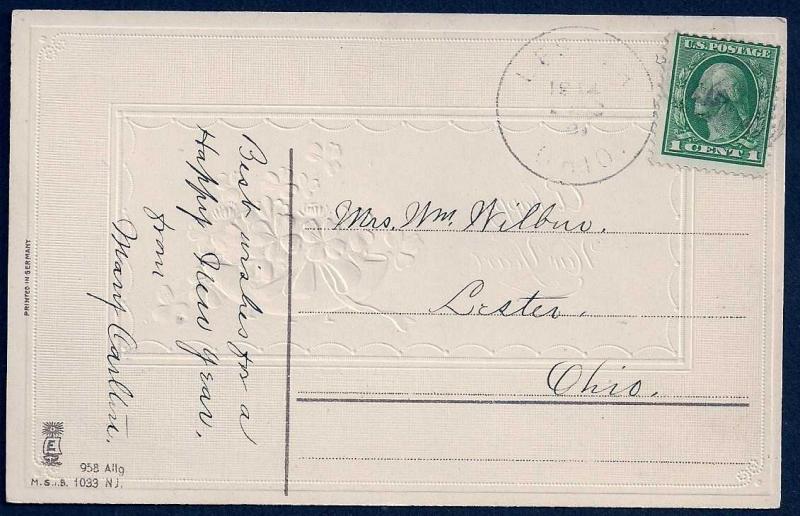 U.S. POSTAGE
1 CENT 1
OHIO
Best wishes for a
Happy New Year.
from
Mary
Mrs. Wm. Wilbur.
Lester.
Ohio.
PRINTED IN GERMANY
958 Allg
M.S.i.B. 1033 NJ.